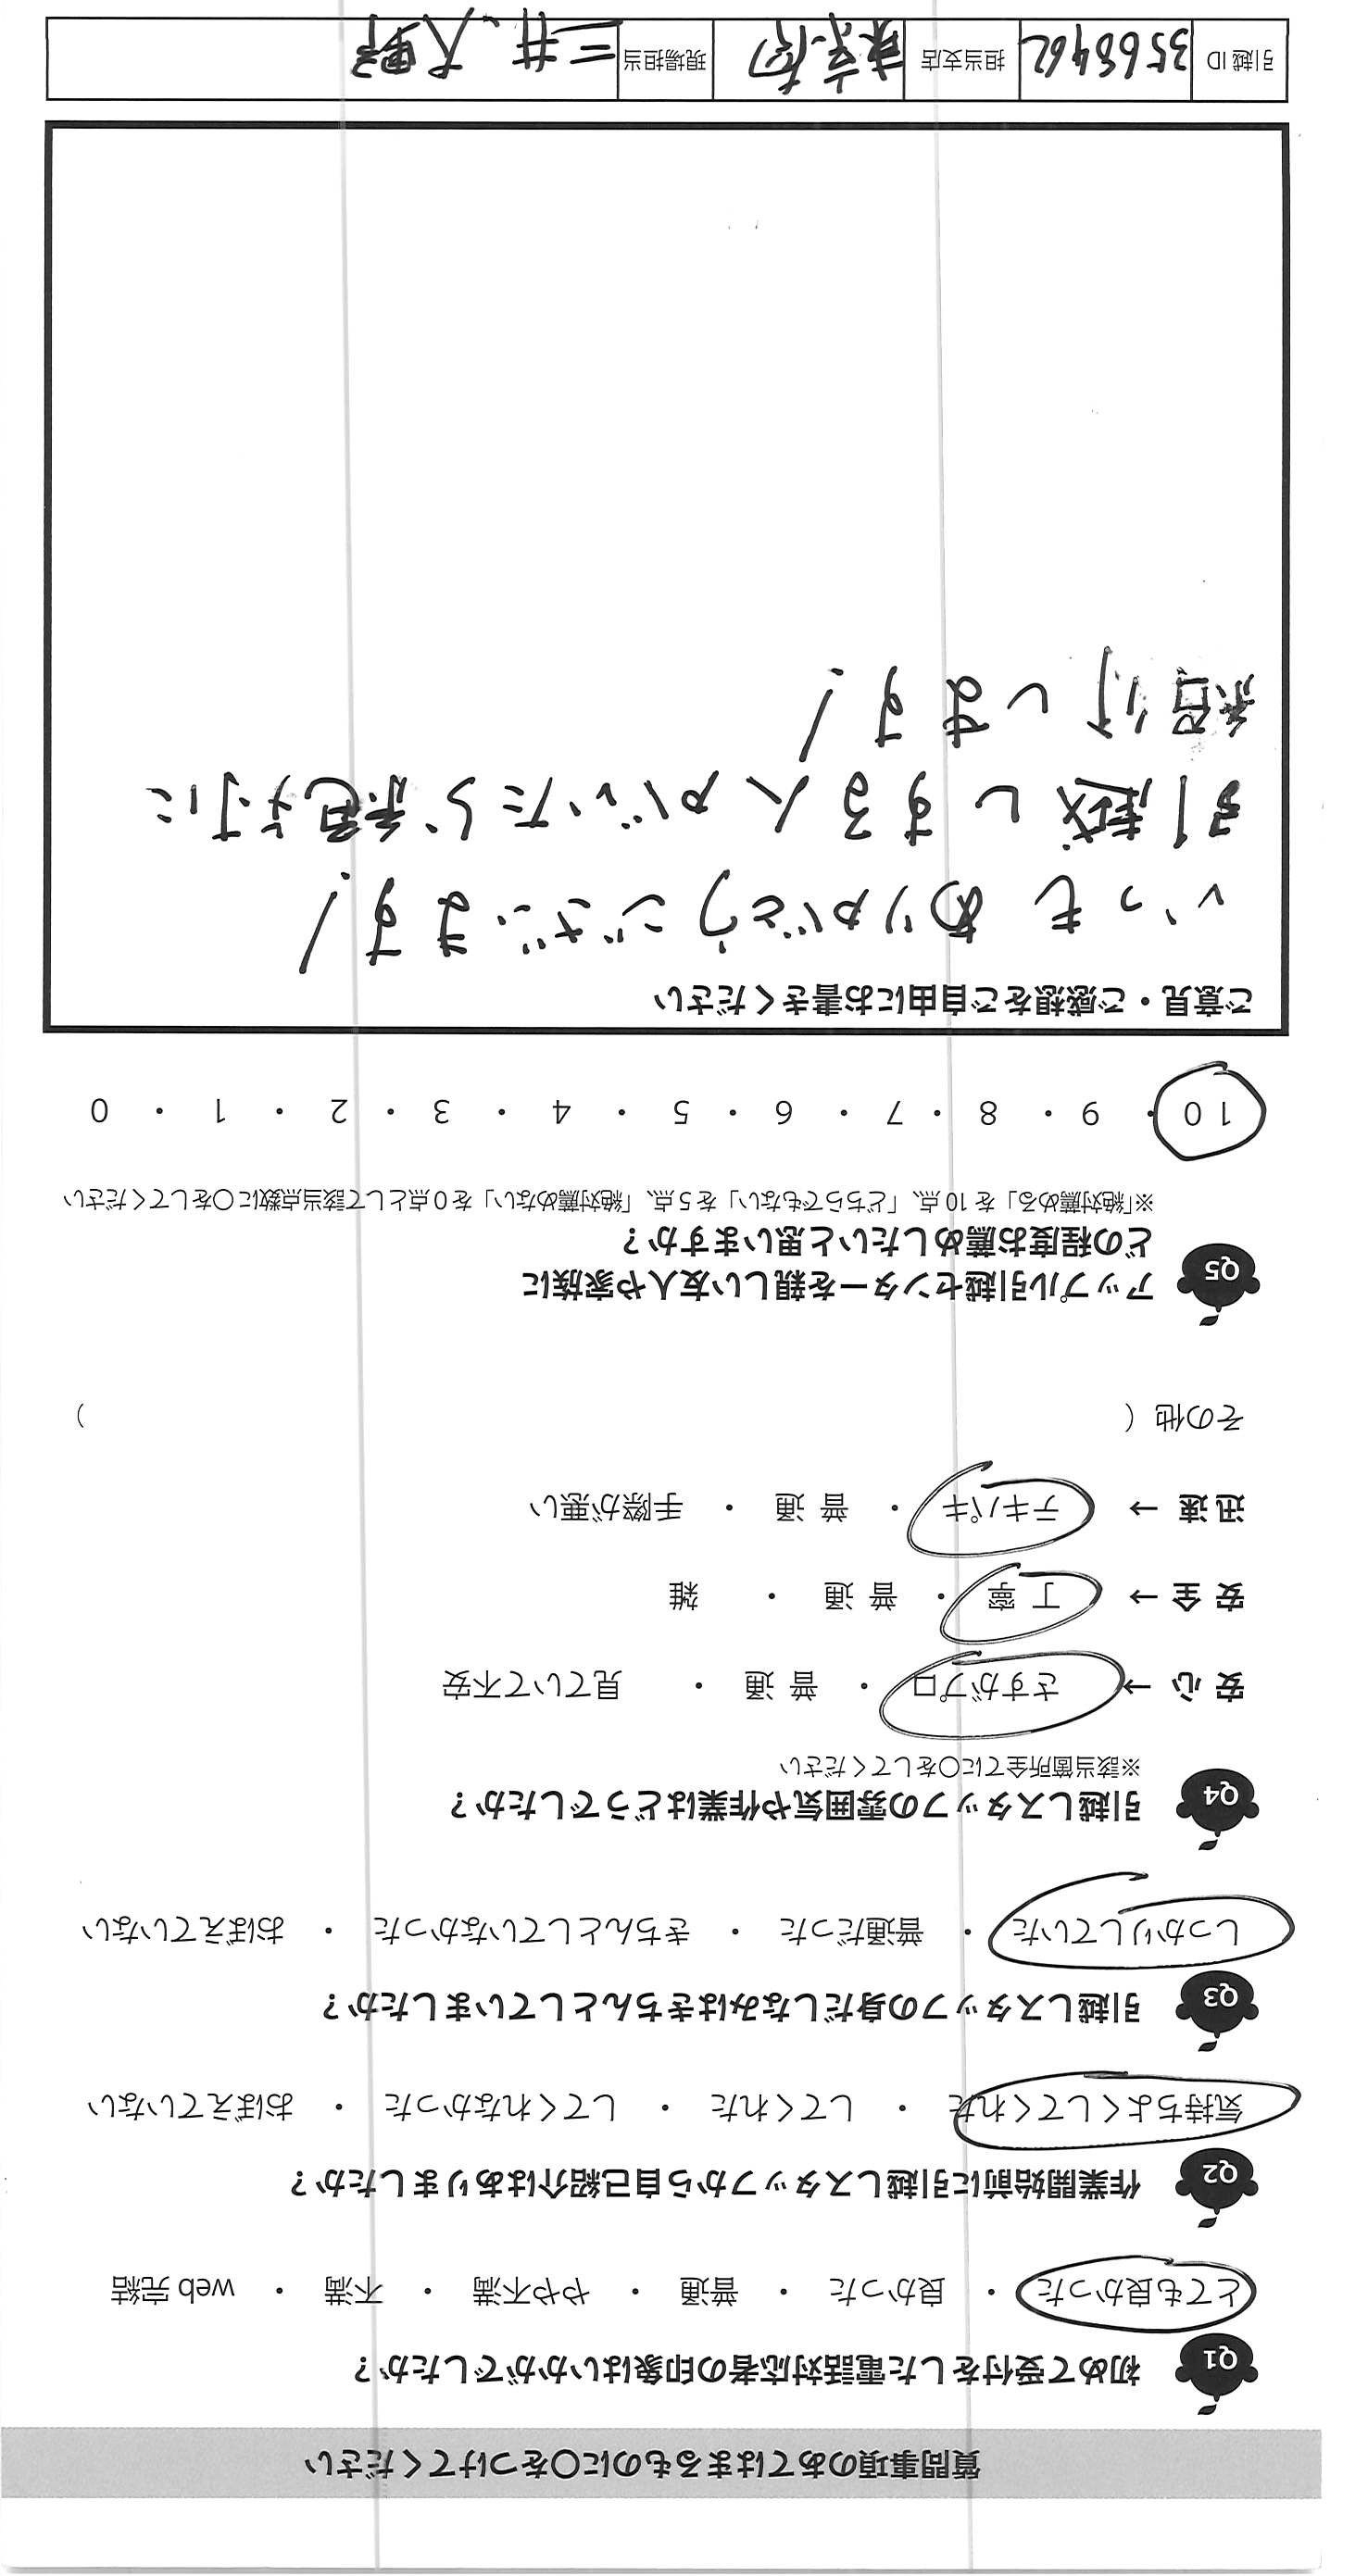 質問事項のあてはまるものに〇をつけてください
Q1 初めて受付をした電話対応者の印象はいかがでしたか？
とても良かった ・ 良かった ・ 普通 ・ やや不満 ・ 不満 ・ web 完結
Q2 作業開始前に引越しスタッフから自己紹介はありましたか？
気持ちよくしてくれた ・ してくれた ・ してくれなかった ・ おぼえていない
Q3 引越しスタッフの身だしなみはきちんとしていましたか？
しっかりしていた ・ 普通だった ・ きちんとしていなかった ・ おぼえていない
Q4 引越しスタッフの雰囲気や作業はどうでしたか？
※該当箇所全てに〇をしてください
安 心 → さすがプロ ・ 普 通 ・ 見ていて不安
安 全 → 丁 寧 ・ 普 通 ・ 雑
迅 速 → テキパキ ・ 普 通 ・ 手際が悪い
その他（ ）
Q5 アップル引越センターを親しい友人や家族に
どの程度お薦めしたいと思いますか？
※「絶対薦める」を 10 点、「どちらでもない」を 5 点、「絶対薦めない」を 0 点として該当点数に〇をしてください
10 ・ 9 ・ 8 ・ 7 ・ 6 ・ 5 ・ 4 ・ 3 ・ 2 ・ 1 ・ 0
ご意見・ご感想をご自由にお書きください
いつもありがとうございます!
引越しする人がいたら絶対に
紹介します!
引越 ID 3568462 担当支店 東京南 現場担当 三井、大野